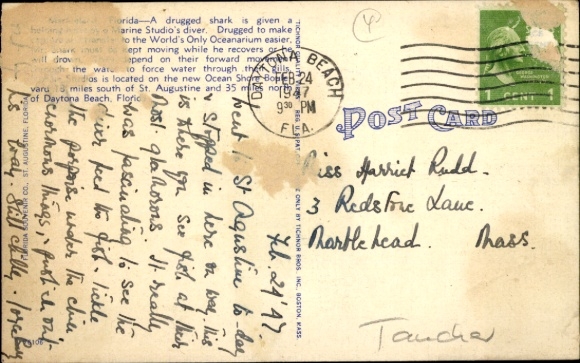 Marineland, Florida—A drugged shark is given a
Marine Studio's diver. Drugged to make
to the World's Only Oceanarium easier,
must be kept moving while he recovers or he
will drown. depend on their forward
the water to force water through their gills.
Studios is located on the new Ocean Shore Boule-
vard 18 miles south of St. Augustine and 35 miles north
of Daytona Beach, Florida.
FLORIDA SOUVENIR CO., ST. AUGUSTINE, FLORIDA
TICHNOR QUALITY VIEWS REG. U.S. PAT. OFF.
ONLY BY TICHNOR BROS. INC., BOSTON, MASS.
DAYTONA BEACH
FEB 24
1947
9 30 PM
FLA.
1 CENT 1
POST CARD
Feb. 24 '47
went to St Agustine to-day
& stopped in here on way. This
is where you see fish at their
most glamorous. It really
was fascinating to see the
diver feed the fish - tickle
the porpoise under the chin
Enormous things, & push it out
his way. Still chilly.
Miss Harriet Rudd.
3 Redstone Lane.
Marblehead. Mass.
Taucher